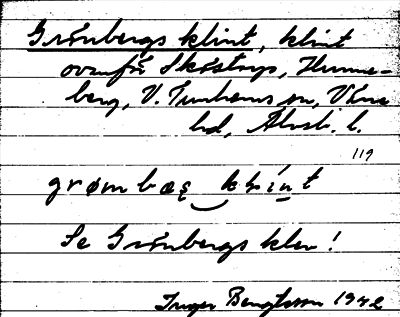 Grönbergs klint, klint
ovanför Skästorp, Hunne-
berg, V. Tunhems sn, Väne
hd, Älvsb. l.
119
grømbæs klint
Se Grönbergs klev!
Inger Bengtsson 1942